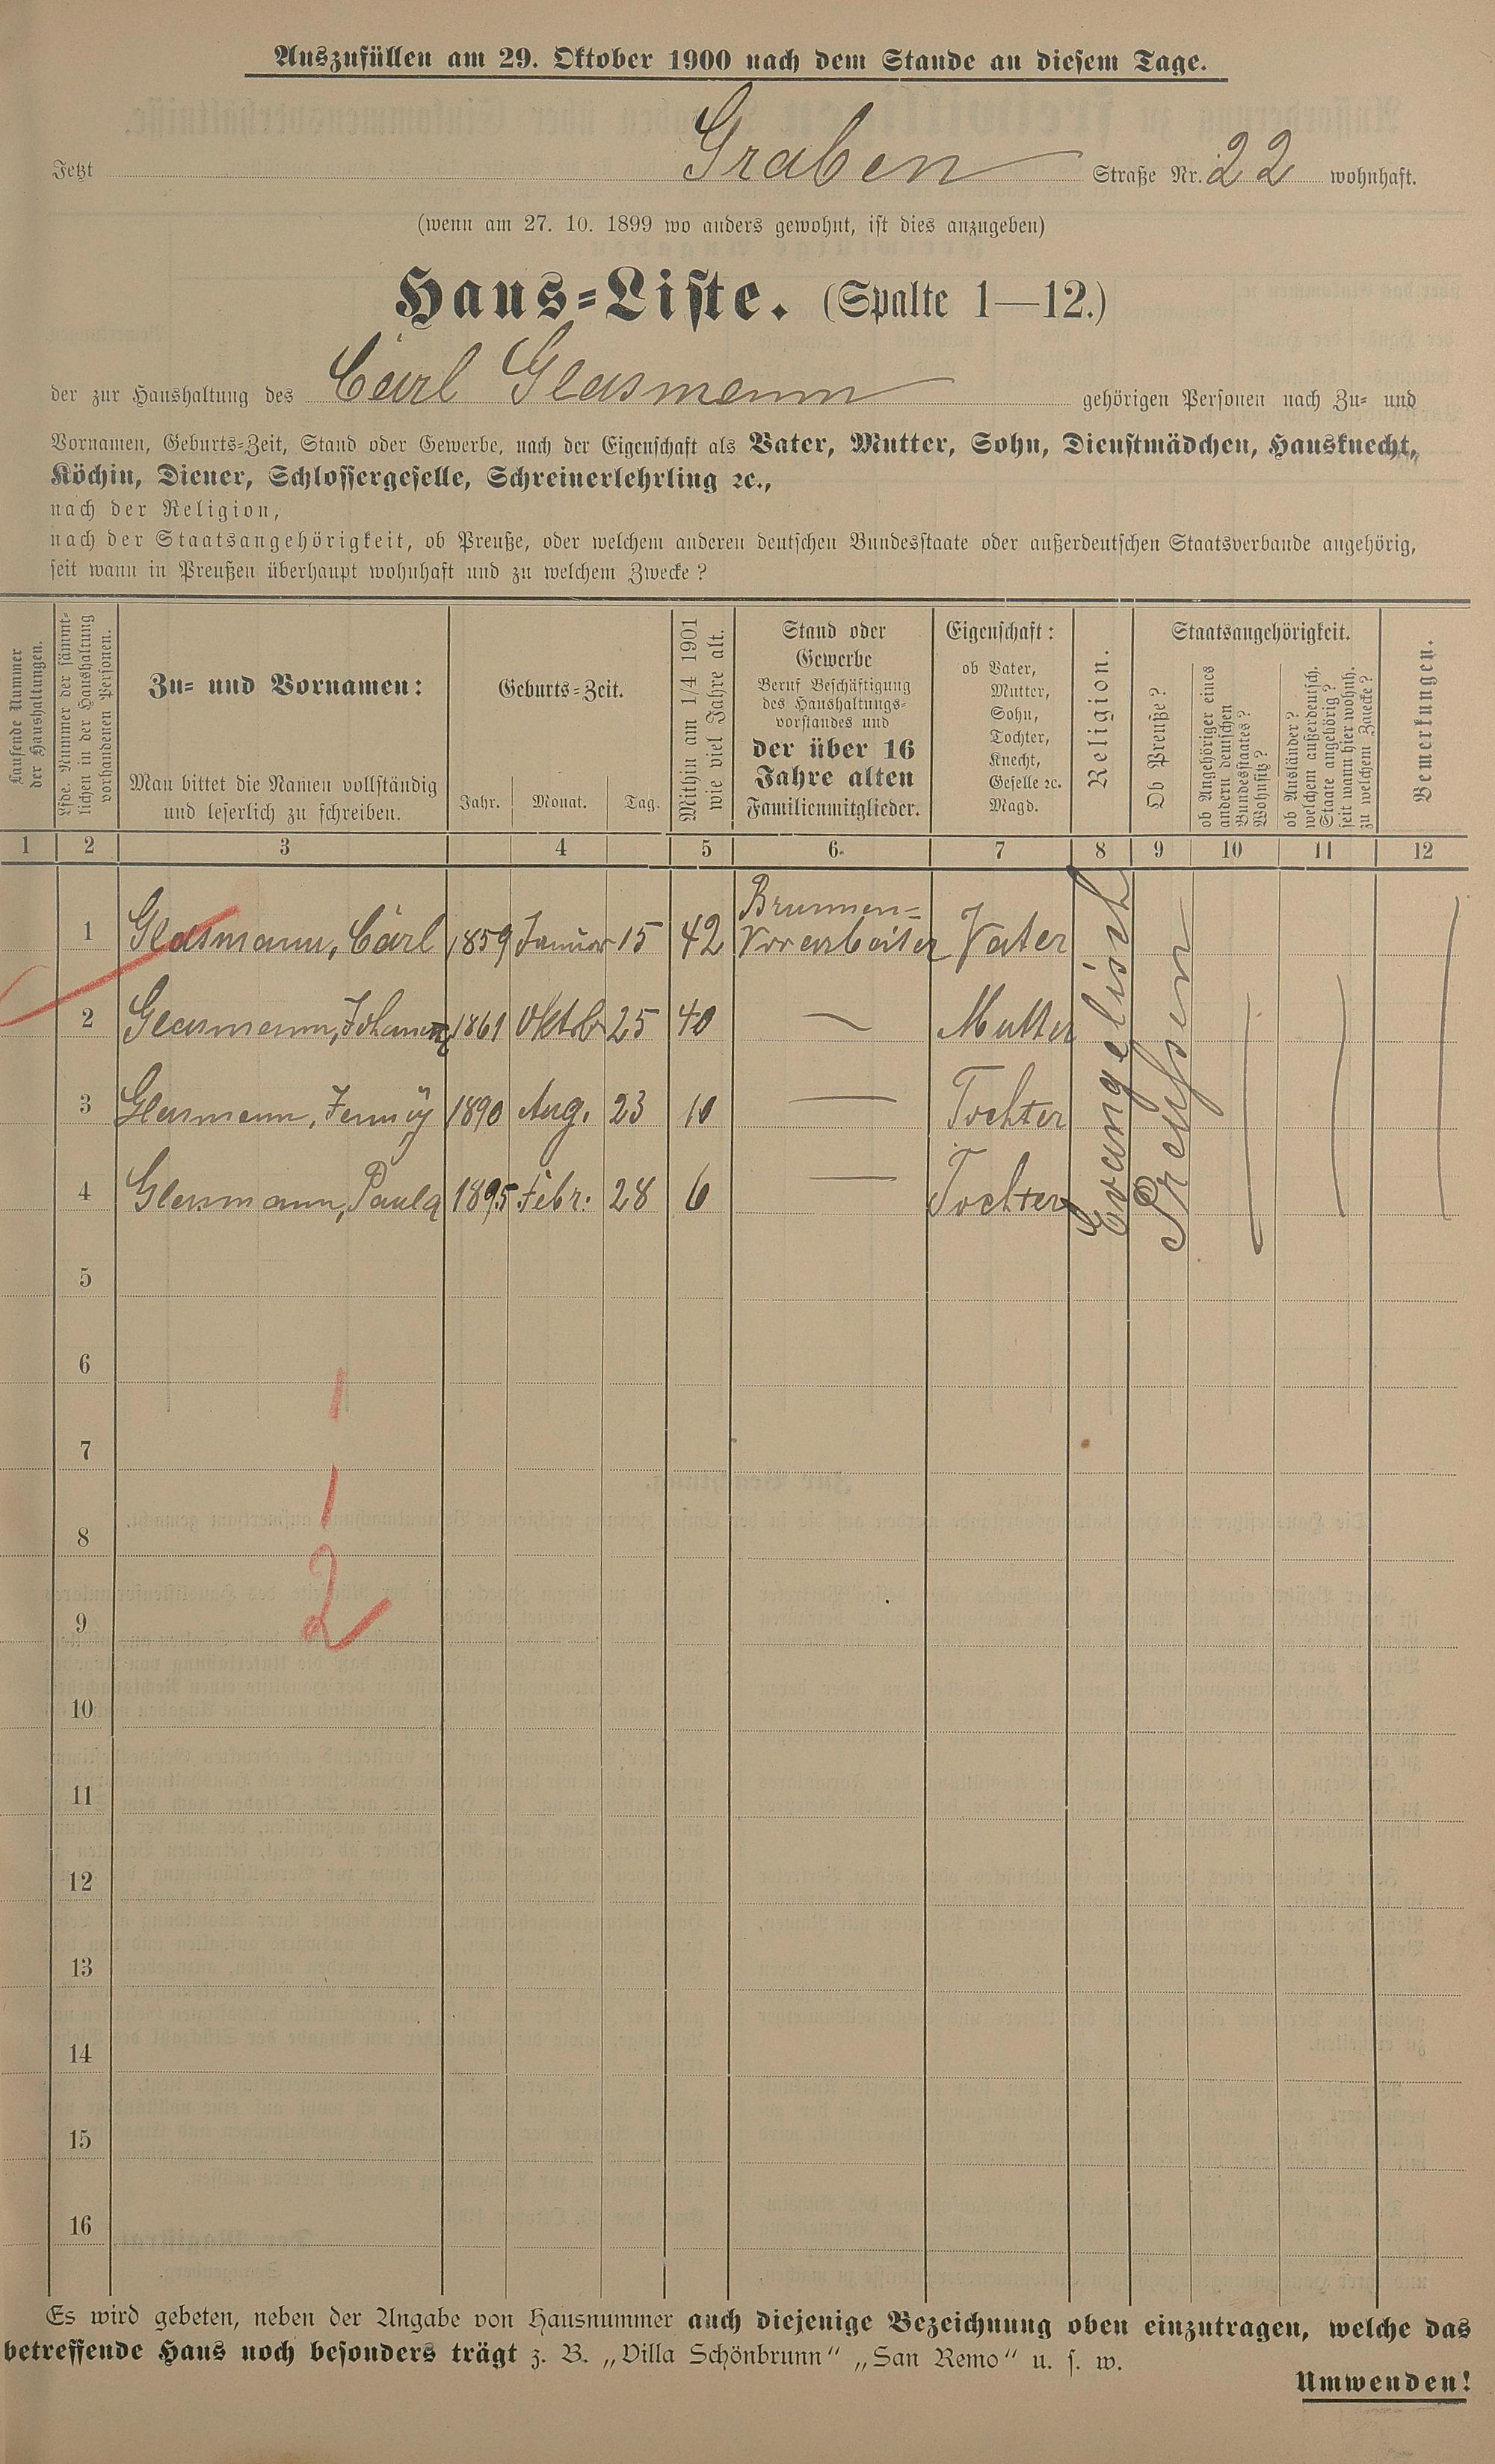 Auszufüllen am 29. Oktober 1900 nach dem Stande an diesem Tage.
Jetzt Graben Straße Nr. 22 wohnhaft.
(wenn am 27. 10. 1899 wo anders gewohnt, ist dies anzugeben)
Haus-Liste. (Spalte 1—12.)
der zur Haushaltung des Carl Glasmann gehörigen Personen nach Zu- und
Vornamen, Geburts-Zeit, Stand oder Gewerbe, nach der Eigenschaft als Vater, Mutter, Sohn, Dienstmädchen, Hausknecht,
Köchin, Diener, Schlossergeselle, Schreinerlehrling ꝛc.,
nach der Religion,
nach der Staatsangehörigkeit, ob Preuße, oder welchem anderen deutschen Bundesstaate oder außerdeutschen Staatsverbande angehörig,
seit wann in Preußen überhaupt wohnhaft und zu welchem Zwecke?
Laufende Nummer
der Haushaltungen.
Lfde. Nummer der sämmt-
lichen in der Haushaltung
vorhandenen Personen.
Zu- und Vornamen:
Man bittet die Namen vollständig
und leserlich zu schreiben.
Geburts-Zeit.
Jahr. Monat. Tag.
Mithin am 1/4 1901
wie viel Jahre alt.
Stand oder
Gewerbe
Beruf Beschäftigung
des Haushaltungs-
vorstandes und
der über 16
Jahre alten
Familienmitglieder.
Eigenschaft:
ob Vater,
Mutter,
Sohn,
Tochter,
Knecht,
Geselle ꝛc.
Magd.
Religion.
Staatsangehörigkeit.
Ob Preuße?
ob Angehöriger eines
andern deutschen
Bundesstaates?
Wohnsitz?
ob Ausländer?
welchem außerdeutsch.
Staate angehörig?
seit wann hier wohnh.
zu welchem Zwecke?
Bemerkungen.
1 2 3 4 5 6. 7 8 9 10 11 12
1 Glasmann, Carl 1859 Januar 15 42 Brunnen=
Vorarbeiter Vater
2 Glasmann, Johanna 1861 Oktob 25 40 — Mutter
3 Glasmann, Jenny 1890 Aug. 23 10 — Tochter
4 Glasmann, Paula 1895 Febr. 28 6 — Tochter
Evangelisch
Preußen
5
6
1
7
1
8
2
9
10
11
12
13
14
15
16
Es wird gebeten, neben der Angabe von Hausnummer auch diejenige Bezeichnung oben einzutragen, welche das
betreffende Haus noch besonders trägt z. B. „Villa Schönbrunn“ „San Remo“ u. s. w.
Umwenden!